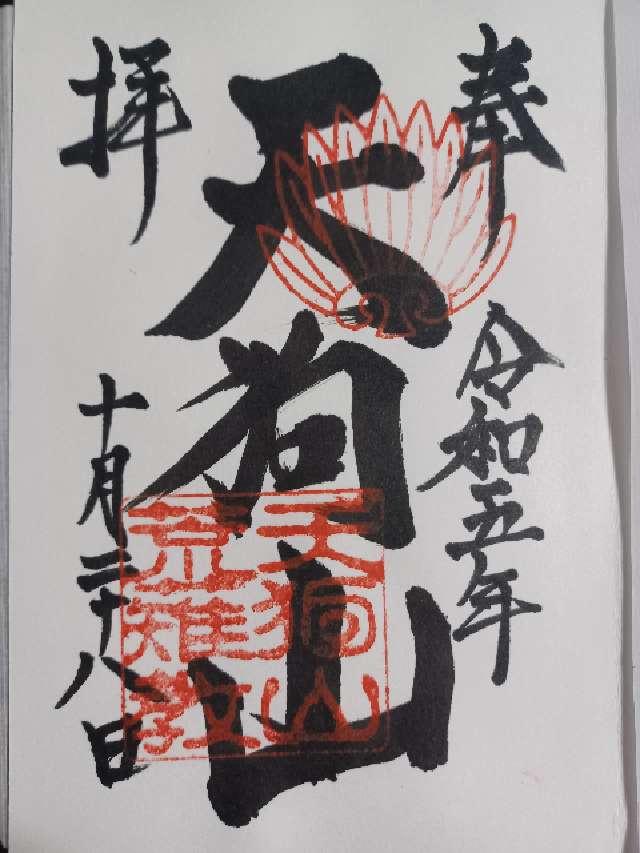 奉
令和五年
天狗山
拝
十月二十八日
天狗山
荒雅教